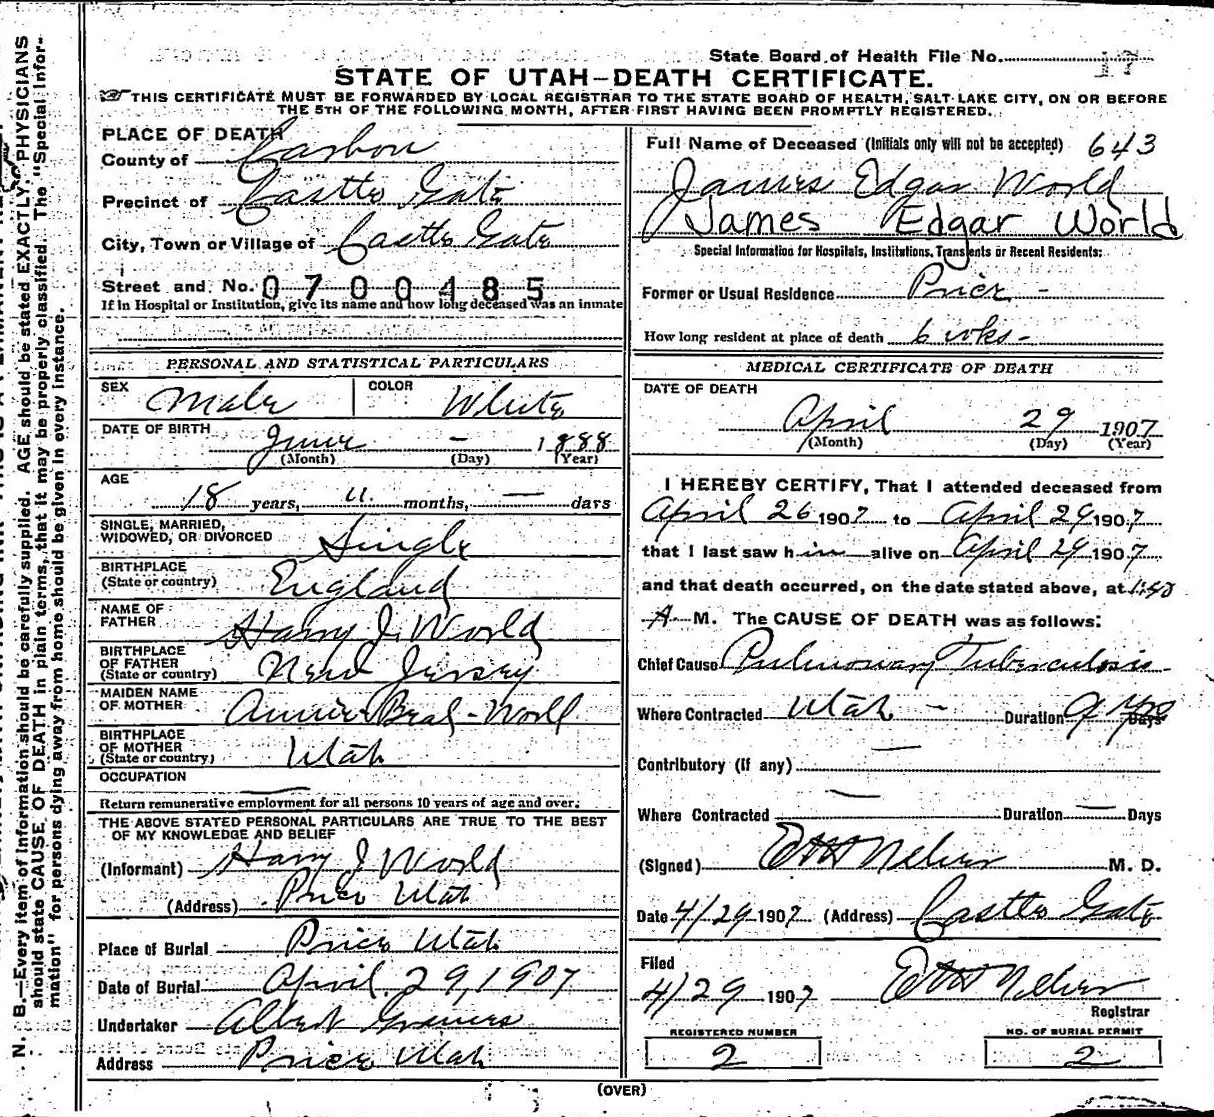 State Board of Health File No. 17
STATE OF UTAH—DEATH CERTIFICATE.
THIS CERTIFICATE MUST BE FORWARDED BY LOCAL REGISTRAR TO THE STATE BOARD OF HEALTH, SALT LAKE CITY, ON OR BEFORE
THE 5TH OF THE FOLLOWING MONTH, AFTER FIRST HAVING BEEN PROMPTLY REGISTERED.
PLACE OF DEATH
County of Carbon
Precinct of Castle Gate
City, Town or Village of Castle Gate
Street and No. 0700485
If in Hospital or Institution, give its name and how long deceased was an inmate
PERSONAL AND STATISTICAL PARTICULARS
SEX Male COLOR White
DATE OF BIRTH June — 1888
(Month) (Day) (Year)
AGE
18 years, 11 months, — days
SINGLE, MARRIED,
WIDOWED, OR DIVORCED Single
BIRTHPLACE
(State or country) England
NAME OF
FATHER Harry J. World
BIRTHPLACE
OF FATHER
(State or country) New Jersey
MAIDEN NAME
OF MOTHER Annie Beal-World
BIRTHPLACE
OF MOTHER
(State or country) Utah
OCCUPATION —
Return remunerative employment for all persons 10 years of age and over.
THE ABOVE STATED PERSONAL PARTICULARS ARE TRUE TO THE BEST
OF MY KNOWLEDGE AND BELIEF
(Informant) Harry J World
(Address) Price Utah
Place of Burial Price Utah
Date of Burial April 29, 1907
Undertaker Albert
Address Price Utah
Full Name of Deceased (Initials only will not be accepted) 643
James Edgar World
James Edgar World
Special Information for Hospitals, Institutions, Transients or Recent Residents:
Former or Usual Residence Price -
How long resident at place of death 6 wks -
MEDICAL CERTIFICATE OF DEATH
DATE OF DEATH
April 29 1907
(Month) (Day) (Year)
I HEREBY CERTIFY, That I attended deceased from
April 26 1907 to April 29 1907
that I last saw him alive on April 29 1907
and that death occurred, on the date stated above, at 1:50
A M. The CAUSE OF DEATH was as follows:
Chief Cause Pulmonary Tuberculosis
Where Contracted Utah - Duration 9 mo Days
Contributory (if any) —
Where Contracted — Duration — Days
(Signed) M. D.
Date 4/29 1907 (Address) Castle Gate
Filed
4/29 1907
Registrar
REGISTERED NUMBER
2
NO. OF BURIAL PERMIT
2
(OVER)
N. B.—Every item of information should be carefully supplied. AGE should be stated EXACTLY. PHYSICIANS
should state CAUSE OF DEATH in plain terms, that it may be properly classified. The "Special Infor-
mation" for persons dying away from home should be given in every instance.